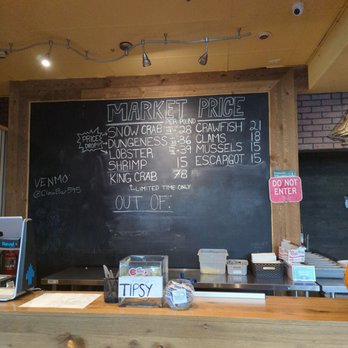 MARKET PRICE
PER POUND
PRICE DROPS
SNOW CRAB 28
DUNGENESS 36
LOBSTER 39
SHRIMP 15
KING CRAB 78
LIMITED TIME ONLY
CRAWFISH 21
CLAMS 18
MUSSELS 15
ESCARGOT 15
OUT OF:
VENMO
DO NOT
ENTER
TIPSY